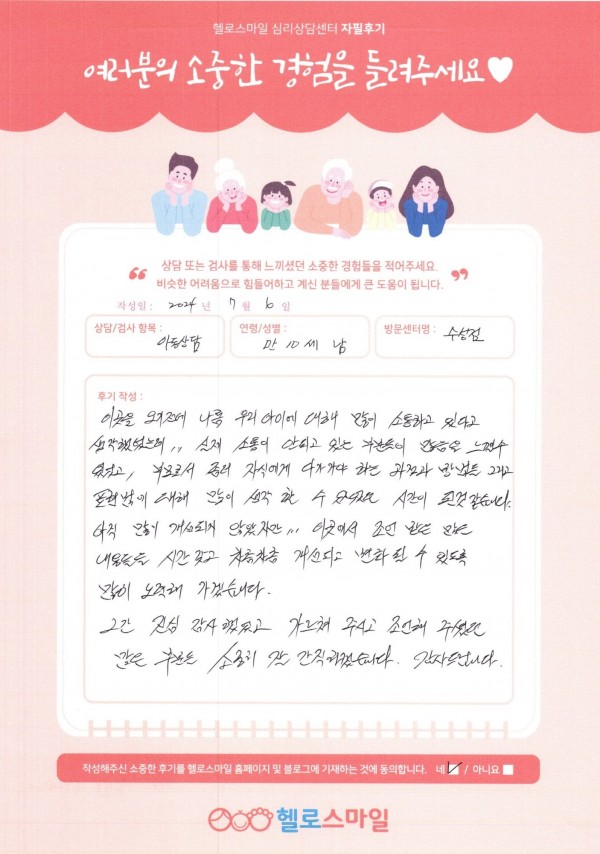 헬로스마일 심리상담센터 자필후기
여러분의 소중한 경험을 들려주세요
상담 또는 검사를 통해 느끼셨던 소중한 경험들을 적어주세요.
비슷한 어려움으로 힘들어하고 계신 분들에게 큰 도움이 됩니다.
작성일 : 2024 년 7 월 6 일
상담/검사 항목 : 아동상담
연령/성별 : 만 10세 남
방문센터명 : 수성점
후기 작성 :
이곳을 오기전에 나름 우리아이에 대해 많이 소통하고 있다고
생각했었는데,,, 실제 소통이 안되고 있는 부분들이 많음을 느낄수
있었고, 부모로서 좀더 자식에게 다가가야 하는 과정과 방법들 그리고
표현법에 대해 많이 생각 할 수 있었던 시간이 된것 같습니다.
아직 많이 개선되지 않았지만,,, 이곳에서 조언 받은 많은
내용들을 시간갖고 차츰차츰 개선되고 변화 될 수 있도록
많이 노력해 가겠습니다.
그간 진심 감사했었고 가르쳐 주시고 조언해 주셨던
많은 부분들 소중히 잘 간직하겠습니다. 감사드립니다.
작성해주신 소중한 후기를 헬로스마일 홈페이지 및 블로그에 기재하는 것에 동의합니다. 네 / 아니요
헬로스마일